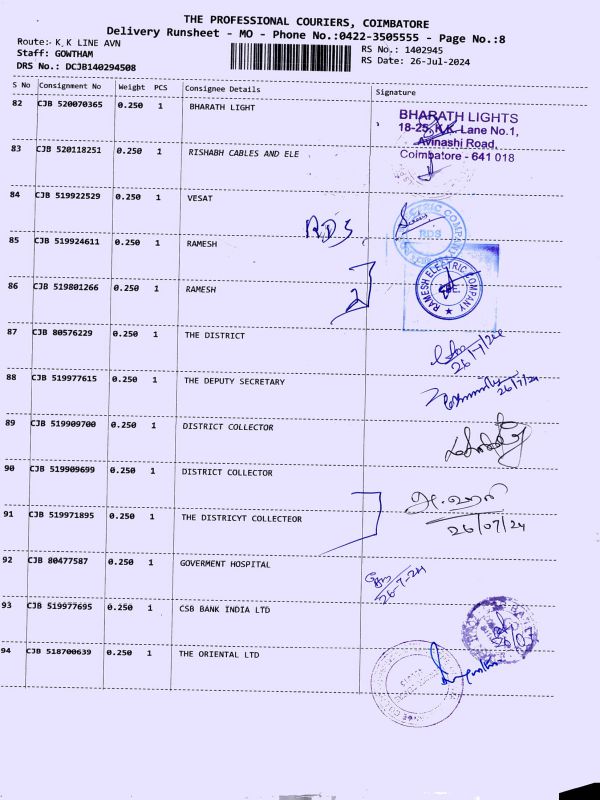 THE PROFESSIONAL COURIERS, COIMBATORE
Delivery Runsheet - MO - Phone No.:0422-3505555 - Page No.:8
Route:- K.K LINE AVN
Staff: GOWTHAM
DRS No.: DCJB140294508
RS No.: 1402945
RS Date: 26-Jul-2024
S No Consignment No Weight PCS Consignee Details Signature
82 CJB 520070365 0.250 1 BHARATH LIGHT
BHARATH LIGHTS
18-25, K.K. Lane No.1,
Avinashi Road,
Coimbatore - 641 018
83 CJB 520118251 0.250 1 RISHABH CABLES AND ELE
84 CJB 519922529 0.250 1 VESAT
RDS
RDS
85 CJB 519924611 0.250 1 RAMESH
RAMESH ELECTRIC COMPANY
86 CJB 519801266 0.250 1 RAMESH
2
87 CJB 80576229 0.250 1 THE DISTRICT
26/7/24
88 CJB 519977615 0.250 1 THE DEPUTY SECRETARY
26/7/24
89 CJB 519909700 0.250 1 DISTRICT COLLECTOR
90 CJB 519909699 0.250 1 DISTRICT COLLECTOR
91 CJB 519971895 0.250 1 THE DISTRICYT COLLECTEOR
26/07/24
92 CJB 80477587 0.250 1 GOVERMENT HOSPITAL
26-7-24
93 CJB 519977695 0.250 1 CSB BANK INDIA LTD
26/07
94 CJB 518700639 0.250 1 THE ORIENTAL LTD